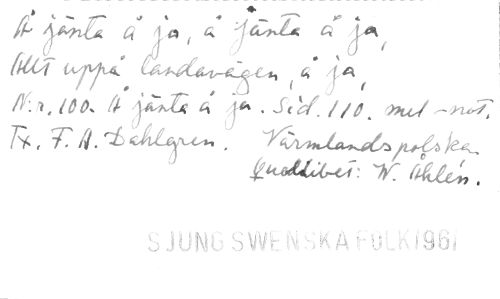 Å jänta å ja, å jänta å ja,
Allt uppå landavägen, å ja,
N:r. 100. Å jänta å ja. Sid. 110. mel-not.
Tx. F. A. Dahlgren. Värmlandspolska.
Quodlibet: W. Åhlén.
SJUNG SWENSKA FOLK 1961